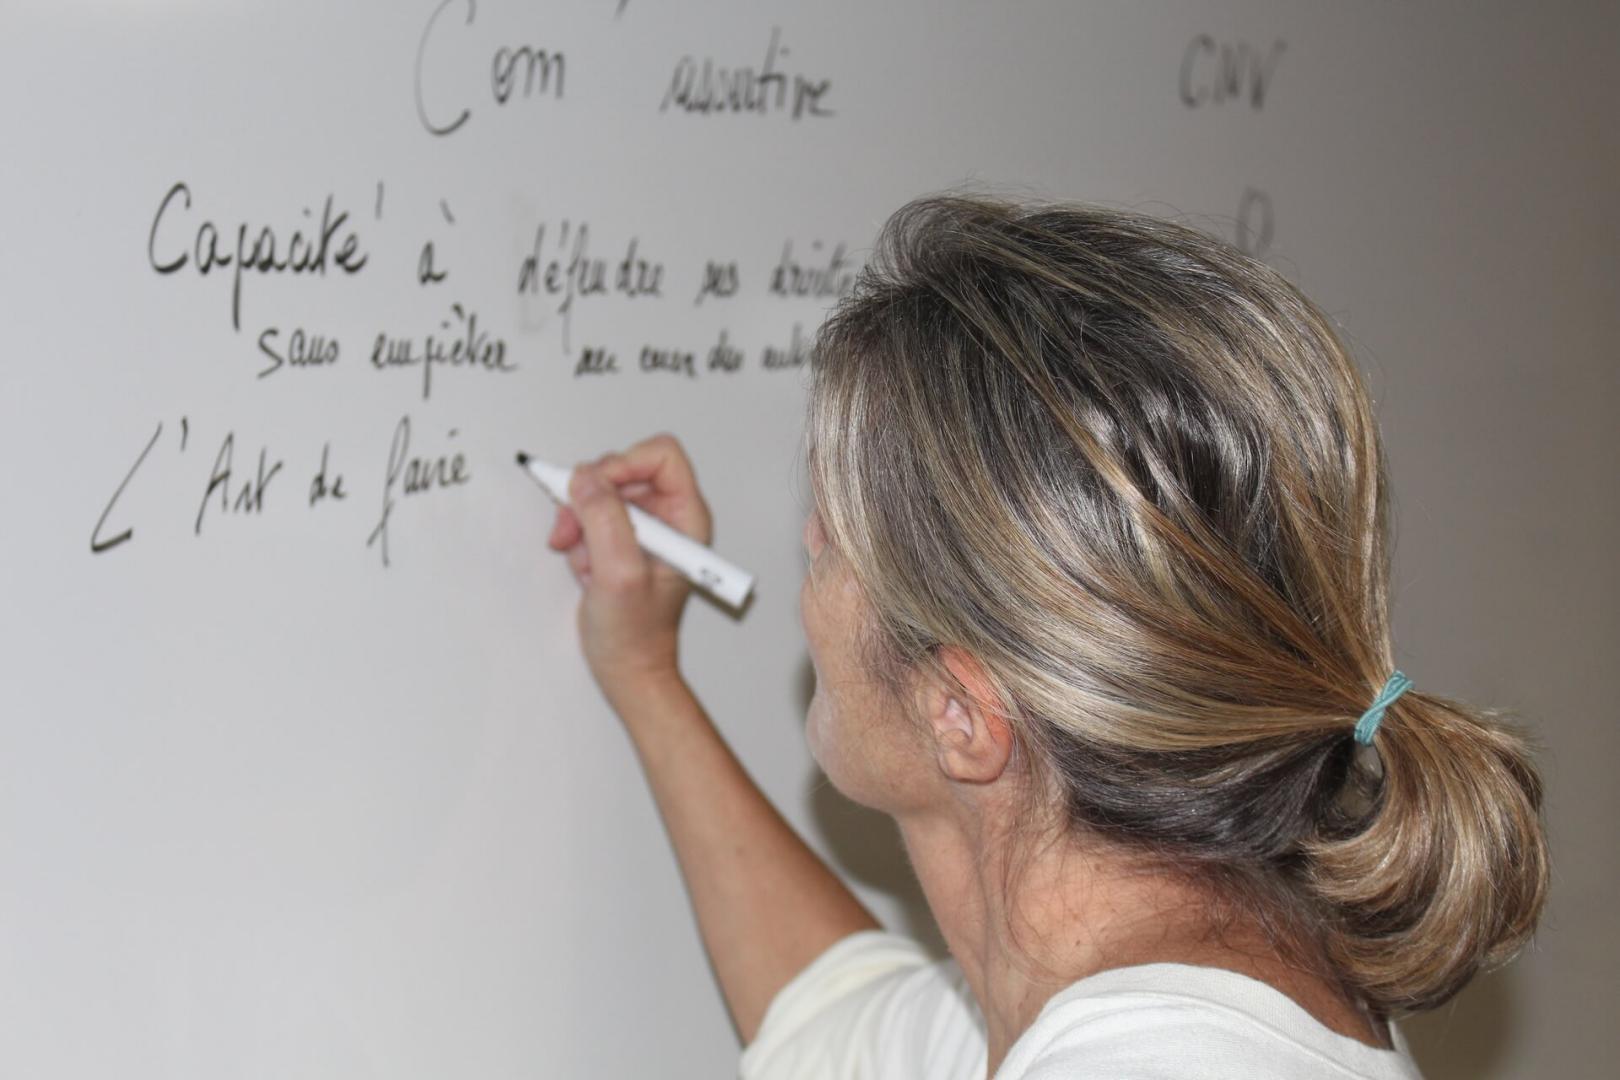 Com' assertive CNV
Capacité à défendre ses droits
sans empiéter sur ceux des
L'Art de faire